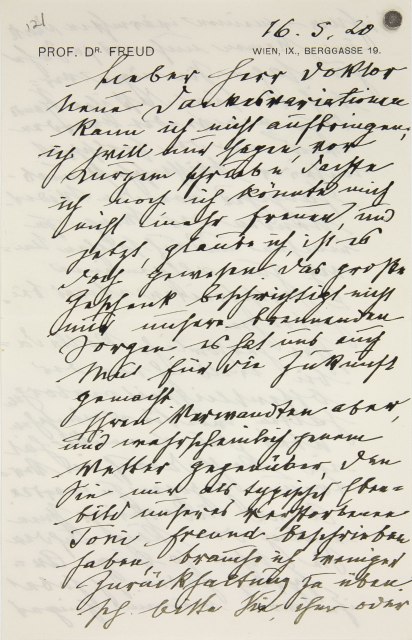 121
16. 5. 20
PROF. DR. FREUD
WIEN, IX., BERGGASSE 19.
Lieber Herr Doktor
Neue Dankesvariationen
kann ich nicht aufbringen,
ich will nur sagen, vor
Kurzem schrieb u dachte
ich noch ich könnte mich
nicht mehr freuen, und
jetzt, glaube ich, ist es
doch gewesen. Das große
Geschenk beschwichtigt nicht
nur unsere brennenden
Sorgen es hat uns auch
Mut für die Zukunft
gemacht
Ihren Verwandten aber,
und wahrscheinlich jenem
Vetter gegenüber, den
Sie mir als typisches Eben-
bild unseres verstorbenen
Toni Freund beschrieben
haben, brauche ich weniger
Zurückhaltung zu üben
Ich bitte Sie, ihm oder